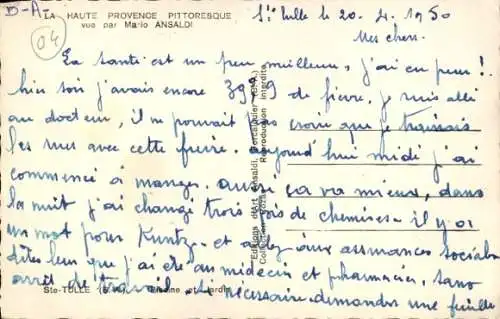 B-A
04
LA HAUTE PROVENCE PITTORESQUE
vue par Mario ANSALDI
Ste Tulle le 20. 4. 1950
Mes chers.
La santé est un peu meilleure, j'ai eu peur!.
hier soir j'avais encore 39°9 de fièvre, je suis allé
au docteur, il ne pouvait pas croire que je trainais
les rues avec cette fièvre. aujourd'hui midi j'ai
commencé à manger. aussi ça va mieux, dans
la nuit j'ai changé trois fois de chemises. il y a
un mot pour Kuntz. et allez aux assurances sociales
dites leur que j'ai été au médecin et pharmacien, sans
arrêt de travail. si nécessaire demandons une feuille
Ste-TULLE
Editions d'Art Ansaldi, Forcalquier
Reproduction interdite